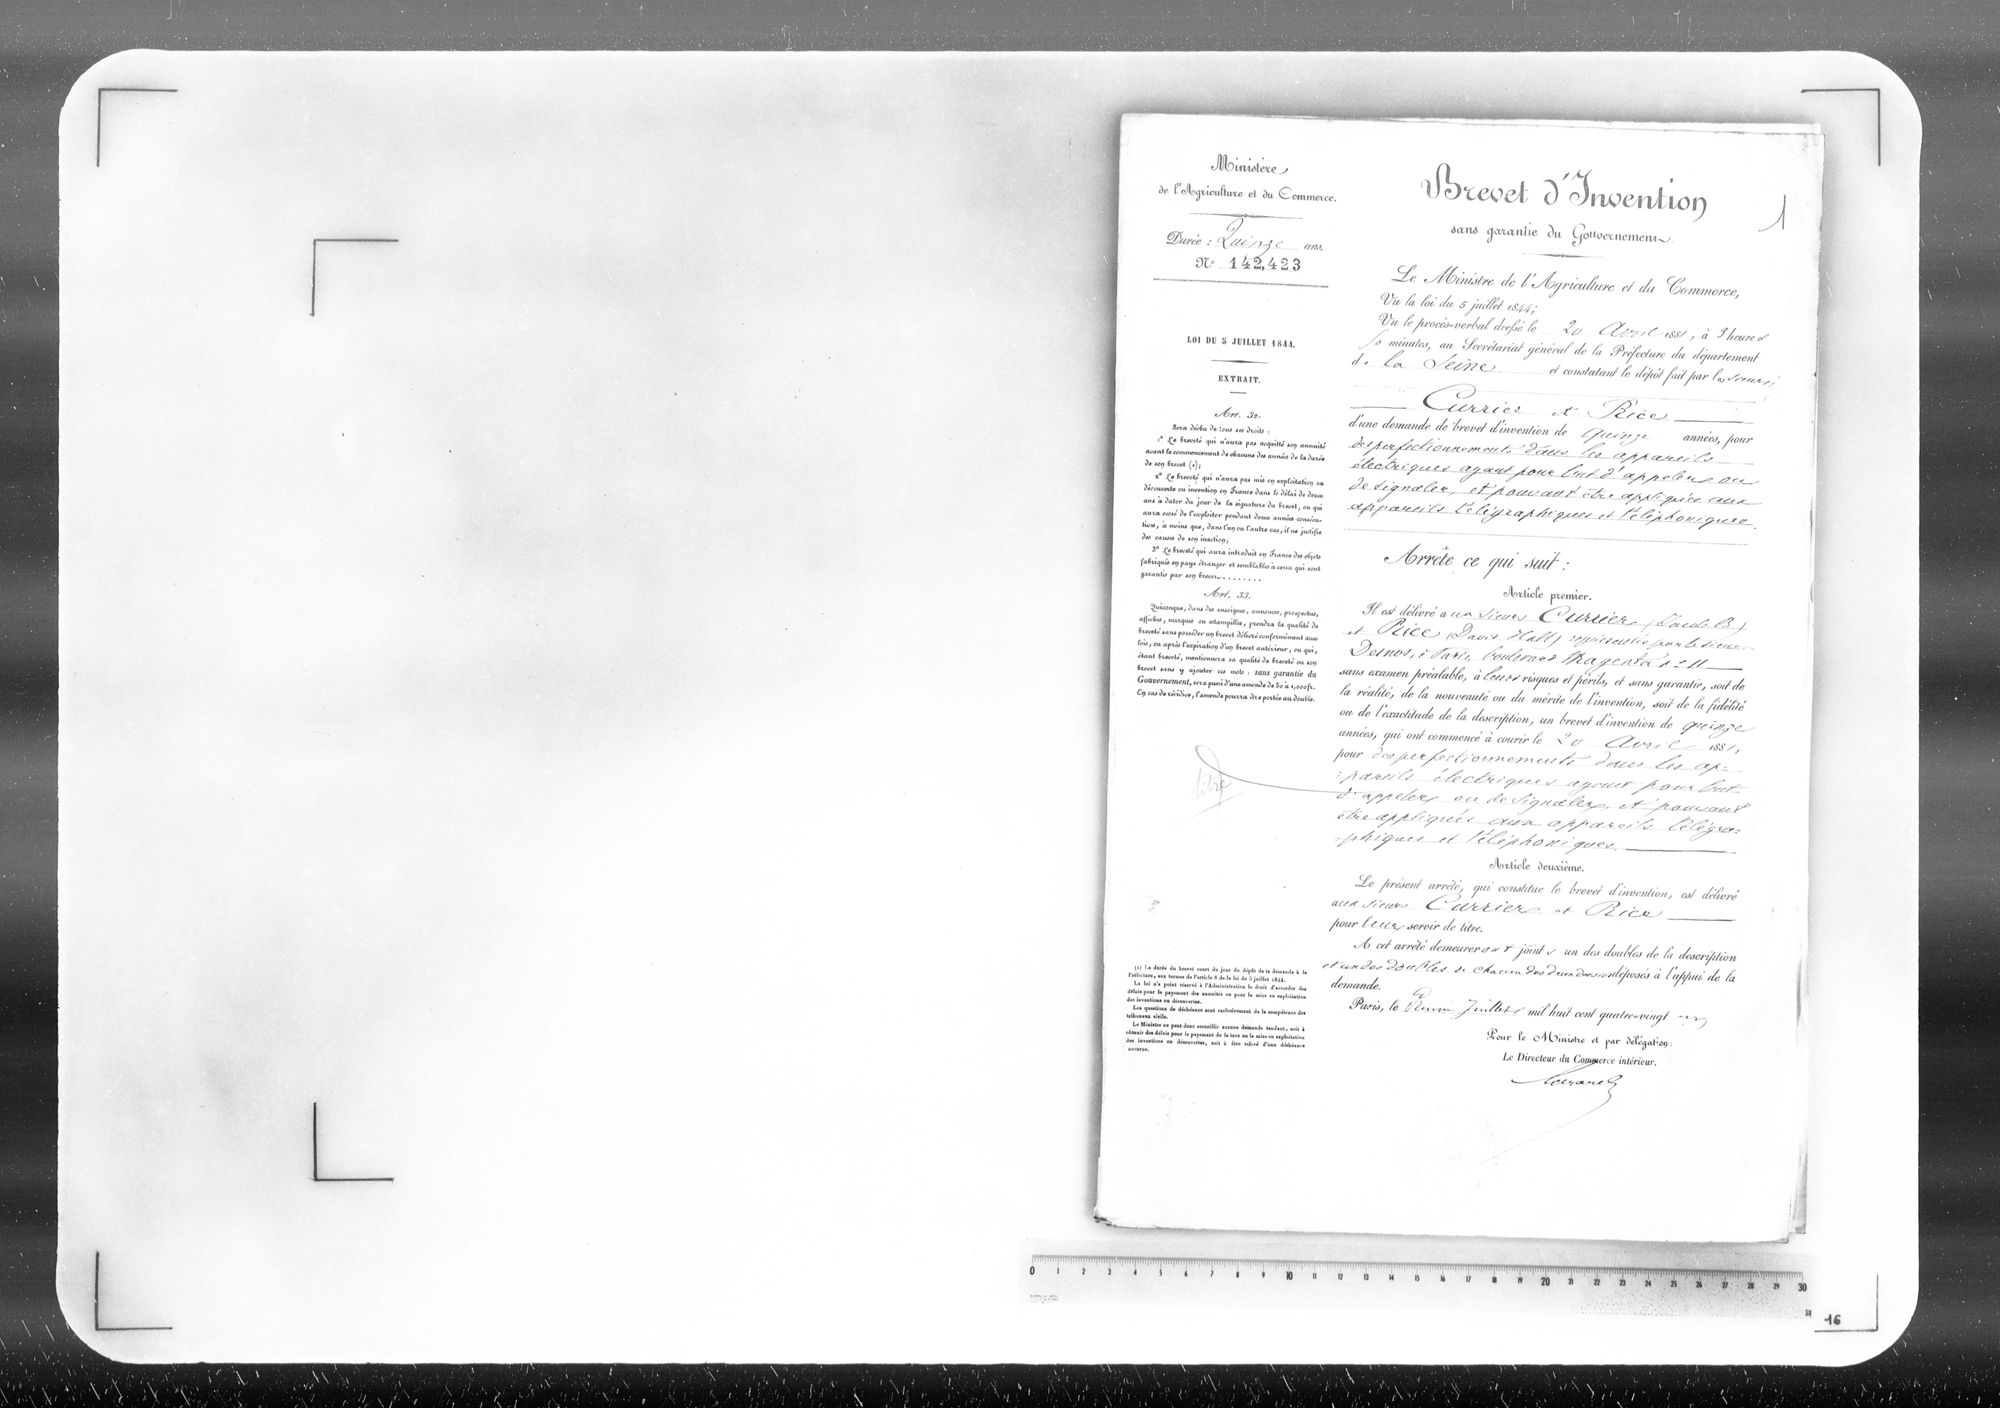 Ministère
de l'Agriculture et du Commerce.
Durée : Quinze ans.
N° 142,423
LOI DU 5 JUILLET 1844.
EXTRAIT.
Art. 32.
Sera déchu de tous ses droits :
1° Le breveté qui n'aura pas acquitté son annuité
avant le commencement de chacune des années de la durée
de son brevet (1);
2° Le breveté qui n'aura pas mis en exploitation sa
découverte ou invention en France dans le délai de deux
ans à dater du jour de la signature du brevet, ou qui
aura cessé de l'exploiter pendant deux années consécu-
tives, à moins que, dans l'un ou l'autre cas, il ne justifie
des causes de son inaction;
3° Le breveté qui aura introduit en France des objets
fabriqués en pays étranger et semblables à ceux qui sont
garantis par son brevet........
Art. 33.
Quiconque, dans des enseignes, annonces, prospectus,
affiches, marques ou estampilles, prendra la qualité de
breveté sans posséder un brevet délivré conformément aux
lois, ou après l'expiration d'un brevet antérieur, ou qui,
étant breveté, mentionnera sa qualité de breveté ou son
brevet sans y ajouter ces mots : sans garantie du
Gouvernement, sera puni d'une amende de 50 à 1,000 fr.
En cas de récidive, l'amende pourra être portée au double.
titre
(1) La durée du brevet court du jour du dépôt de la demande à la
Préfecture, aux termes de l'article 8 de la loi du 5 juillet 1844.
La loi n'a point réservé à l'Administration le droit d'accorder des
délais pour le payement des annuités ou pour la mise en exploitation
des inventions ou découvertes.
Les questions de déchéance sont exclusivement de la compétence des
tribunaux civils.
Le Ministre ne peut donc accueillir aucune demande tendant, soit à
obtenir des délais pour le payement de la taxe ou la mise en exploitation
des inventions ou découvertes, soit à être relevé d'une déchéance
encourue.
Brevet d'Invention
1
sans garantie du Gouvernement.
Le Ministre de l'Agriculture et du Commerce,
Vu la loi du 5 juillet 1844;
Vu le procès-verbal dressé le 20 Avril 1881, à 3 heures
minutes, au Secrétariat général de la Préfecture du département
de la Seine et constatant le dépôt fait par les sieurs
Currier et Rice
d'une demande de brevet d'invention de quinze années, pour
des perfectionnements dans les appareils
électriques ayant pour but d'appeler ou
de signaler, et pouvant être appliqués aux
appareils télégraphiques et téléphoniques.
Arrête ce qui suit :
Article premier.
Il est délivré aux sieurs Currier
et Rice (David Hall) représentés par le sieur
Desnos, à Paris, boulevard Magenta n° 11
sans examen préalable, à leurs risques et périls, et sans garantie, soit de
la réalité, de la nouveauté ou du mérite de l'invention, soit de la fidélité
ou de l'exactitude de la description, un brevet d'invention de quinze
années, qui ont commencé à courir le 20 Avril 1881,
pour des perfectionnements dans les ap-
pareils électriques ayant pour but
d'appeler ou de signaler, et pouvant
être appliqués aux appareils télégra-
phiques et téléphoniques.
Article deuxième.
Le présent arrêté, qui constitue le brevet d'invention, est délivré
aux sieurs Currier et Rice
pour leur servir de titre.
A cet arrêté demeureront joints un des doubles de la description
et un des doubles de chacun des deux dessins déposés à l'appui de la
demande.
Paris, le Premier Juillet mil huit cent quatre-vingt un
Pour le Ministre et par délégation:
Le Directeur du Commerce intérieur.
0 1 2 3 4 5 6 7 8 9 10 11 12 13 14 15 16 17 18 19 20 21 22 23 24 25 26 27 28 29 30
16